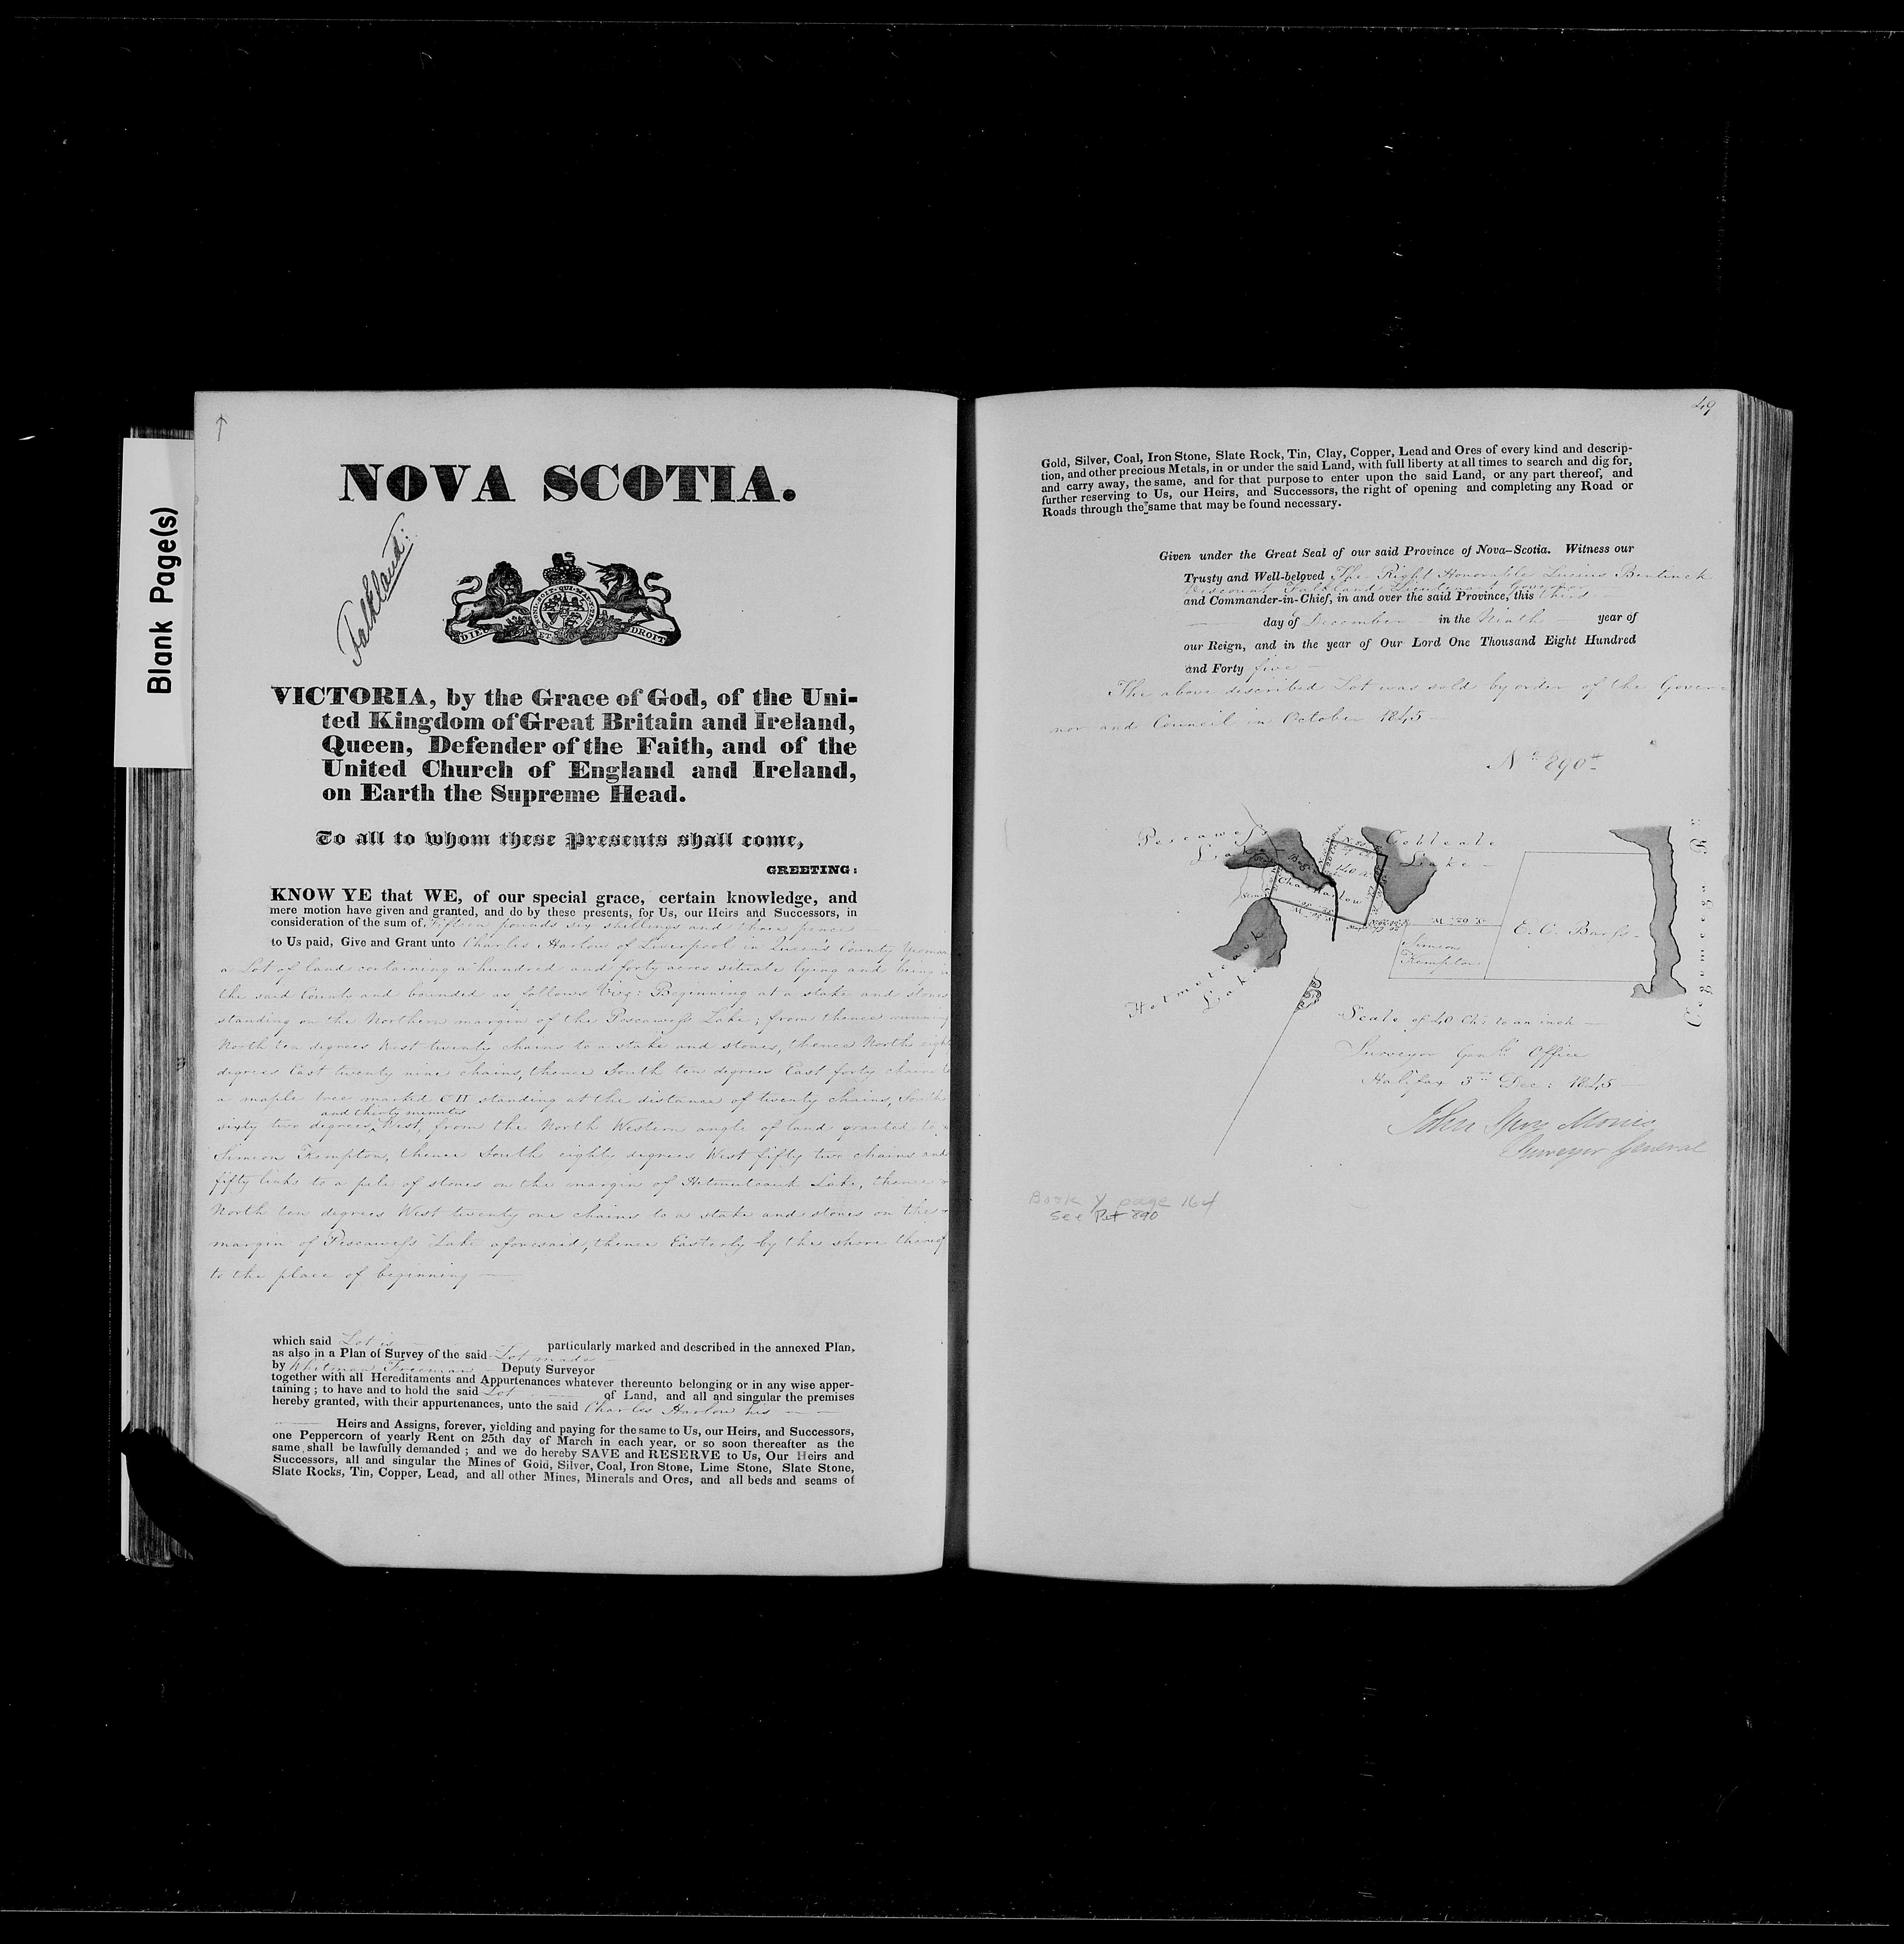 Blank Page(s)
NOVA SCOTIA.
Falkland:
DIEU ET MON DROIT
HONI·SOIT·QUI·MAL·Y·PENSE
VICTORIA, by the Grace of God, of the Uni-
ted Kingdom of Great Britain and Ireland,
Queen, Defender of the Faith, and of the
United Church of England and Ireland,
on Earth the Supreme Head.
To all to whom these Presents shall come,
GREETING:
KNOW YE that WE, of our special grace, certain knowledge, and
mere motion have given and granted, and do by these presents, for Us, our Heirs and Successors, in
consideration of the sum of Fifteen pounds six shillings and three pence
to Us paid, Give and Grant unto Charles Harlow of Liverpool in Queen's County Yeoman
a Lot of land containing a hundred and forty acres situate lying and being in
the said County and bounded as follows Viz: Beginning at a stake and stones
standing on the Northern margin of the Pescawess Lake; from thence running
North ten degrees West twenty chains to a stake and stones, thence North eighty
degrees East twenty nine chains, thence South ten degrees East forty chains to
a maple tree marked C H standing at the distance of twenty chains, South
sixty two degrees and thirty minutes West, from the North Western angle of land granted to
Simeon Kempton, thence South eighty degrees West fifty two chains and
fifty links to a pile of stones on the margin of Hetmuteauk Lake, thence
North ten degrees West twenty one chains to a stake and stones on the
margin of Pescawess Lake aforesaid, thence Easterly by the shore thereof
to the place of beginning
which said Lot is particularly marked and described in the annexed Plan,
as also in a Plan of Survey of the said Lot made
by Whitman Freeman Deputy Surveyor
together with all Hereditaments and Appurtenances whatever thereunto belonging or in any wise apper-
taining; to have and to hold the said Lot of Land, and all and singular the premises
hereby granted, with their appurtenances, unto the said Charles Harlow his
Heirs and Assigns, forever, yielding and paying for the same to Us, our Heirs, and Successors,
one Peppercorn of yearly Rent on 25th day of March in each year, or so soon thereafter as the
same shall be lawfully demanded; and we do hereby SAVE and RESERVE to Us, Our Heirs and
Successors, all and singular the Mines of Gold, Silver, Coal, Iron Stone, Lime Stone, Slate Stone,
Slate Rocks, Tin, Copper, Lead, and all other Mines, Minerals and Ores, and all beds and seams of
49
Gold, Silver, Coal, Iron Stone, Slate Rock, Tin, Clay, Copper, Lead and Ores of every kind and descrip-
tion, and other precious Metals, in or under the said Land, with full liberty at all times to search and dig for,
and carry away, the same, and for that purpose to enter upon the said Land, or any part thereof, and
further reserving to Us, our Heirs, and Successors, the right of opening and completing any Road or
Roads through the same that may be found necessary.
Given under the Great Seal of our said Province of Nova-Scotia. Witness our
Trusty and Well-beloved The Right Honorable Lucius Bentinck
Viscount Falkland Lieutenant Governor
and Commander-in-Chief, in and over the said Province, this third
day of December in the Ninth year of
our Reign, and in the year of Our Lord One Thousand Eight Hundred
and Forty five
The above described Lot was sold by order of the Gover-
nor and Council in October 1845
No 890
Pescawess
Lake
Bog
140 A
Cobleale
Lake
Chas Harlow
Hetmuteauk
Lake
M 20 Ks
Simeon
Kempton
E. C. Barss
Cegumcega Rr
Scale of 40 Chs to an inch
Surveyor Genls Office
Halifax 3rd Dec: 1845
John Spry Morris
Surveyor General
Book Y page 164
See Pet 890